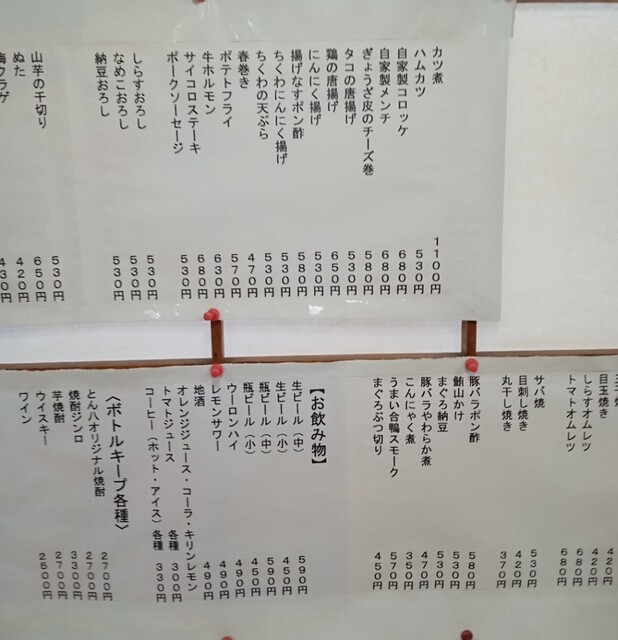 カツ煮 1100円
ハムカツ 530円
自家製コロッケ 680円
自家製メンチ 680円
ぎょうざ皮のチーズ巻 580円
タコの唐揚げ 530円
鶏の唐揚げ 650円
にんにく揚げ 530円
揚げなすポン酢 580円
ちくわにんにく揚げ 530円
ちくわの天ぷら 530円
春巻き 470円
ポテトフライ 570円
牛ホルモン 630円
サイコロステーキ 680円
ポークソーセージ 530円
しらすおろし 530円
なめこおろし 530円
納豆おろし 530円
山芋の千切り 530円
ぬた 650円
梅クラゲ 420円
430円
420円
目玉焼き 420円
しらすオムレツ 680円
トマトオムレツ 680円
サバ焼 530円
目刺し焼き 420円
丸干し焼き 370円
豚バラポン酢 580円
鮪山かけ 530円
まぐろ納豆 530円
豚バラやわらか煮 470円
こんにゃく煮 350円
うまい合鴨スモーク 570円
まぐろぶつ切り 450円
【お飲み物】
生ビール（中） 590円
生ビール（小） 450円
瓶ビール（中） 590円
瓶ビール（小） 450円
ウーロンハイ 490円
レモンサワー 490円
地酒 490円
オレンジジュース・コーラ・キリンレモン
トマトジュース 各種 300円
コーヒー（ホット・アイス） 各種 330円
〈ボトルキープ各種〉
とん八オリジナル焼酎 2700円
焼酎ジンロ 2700円
芋焼酎 3300円
ウイスキー 2700円
ワイン 2500円